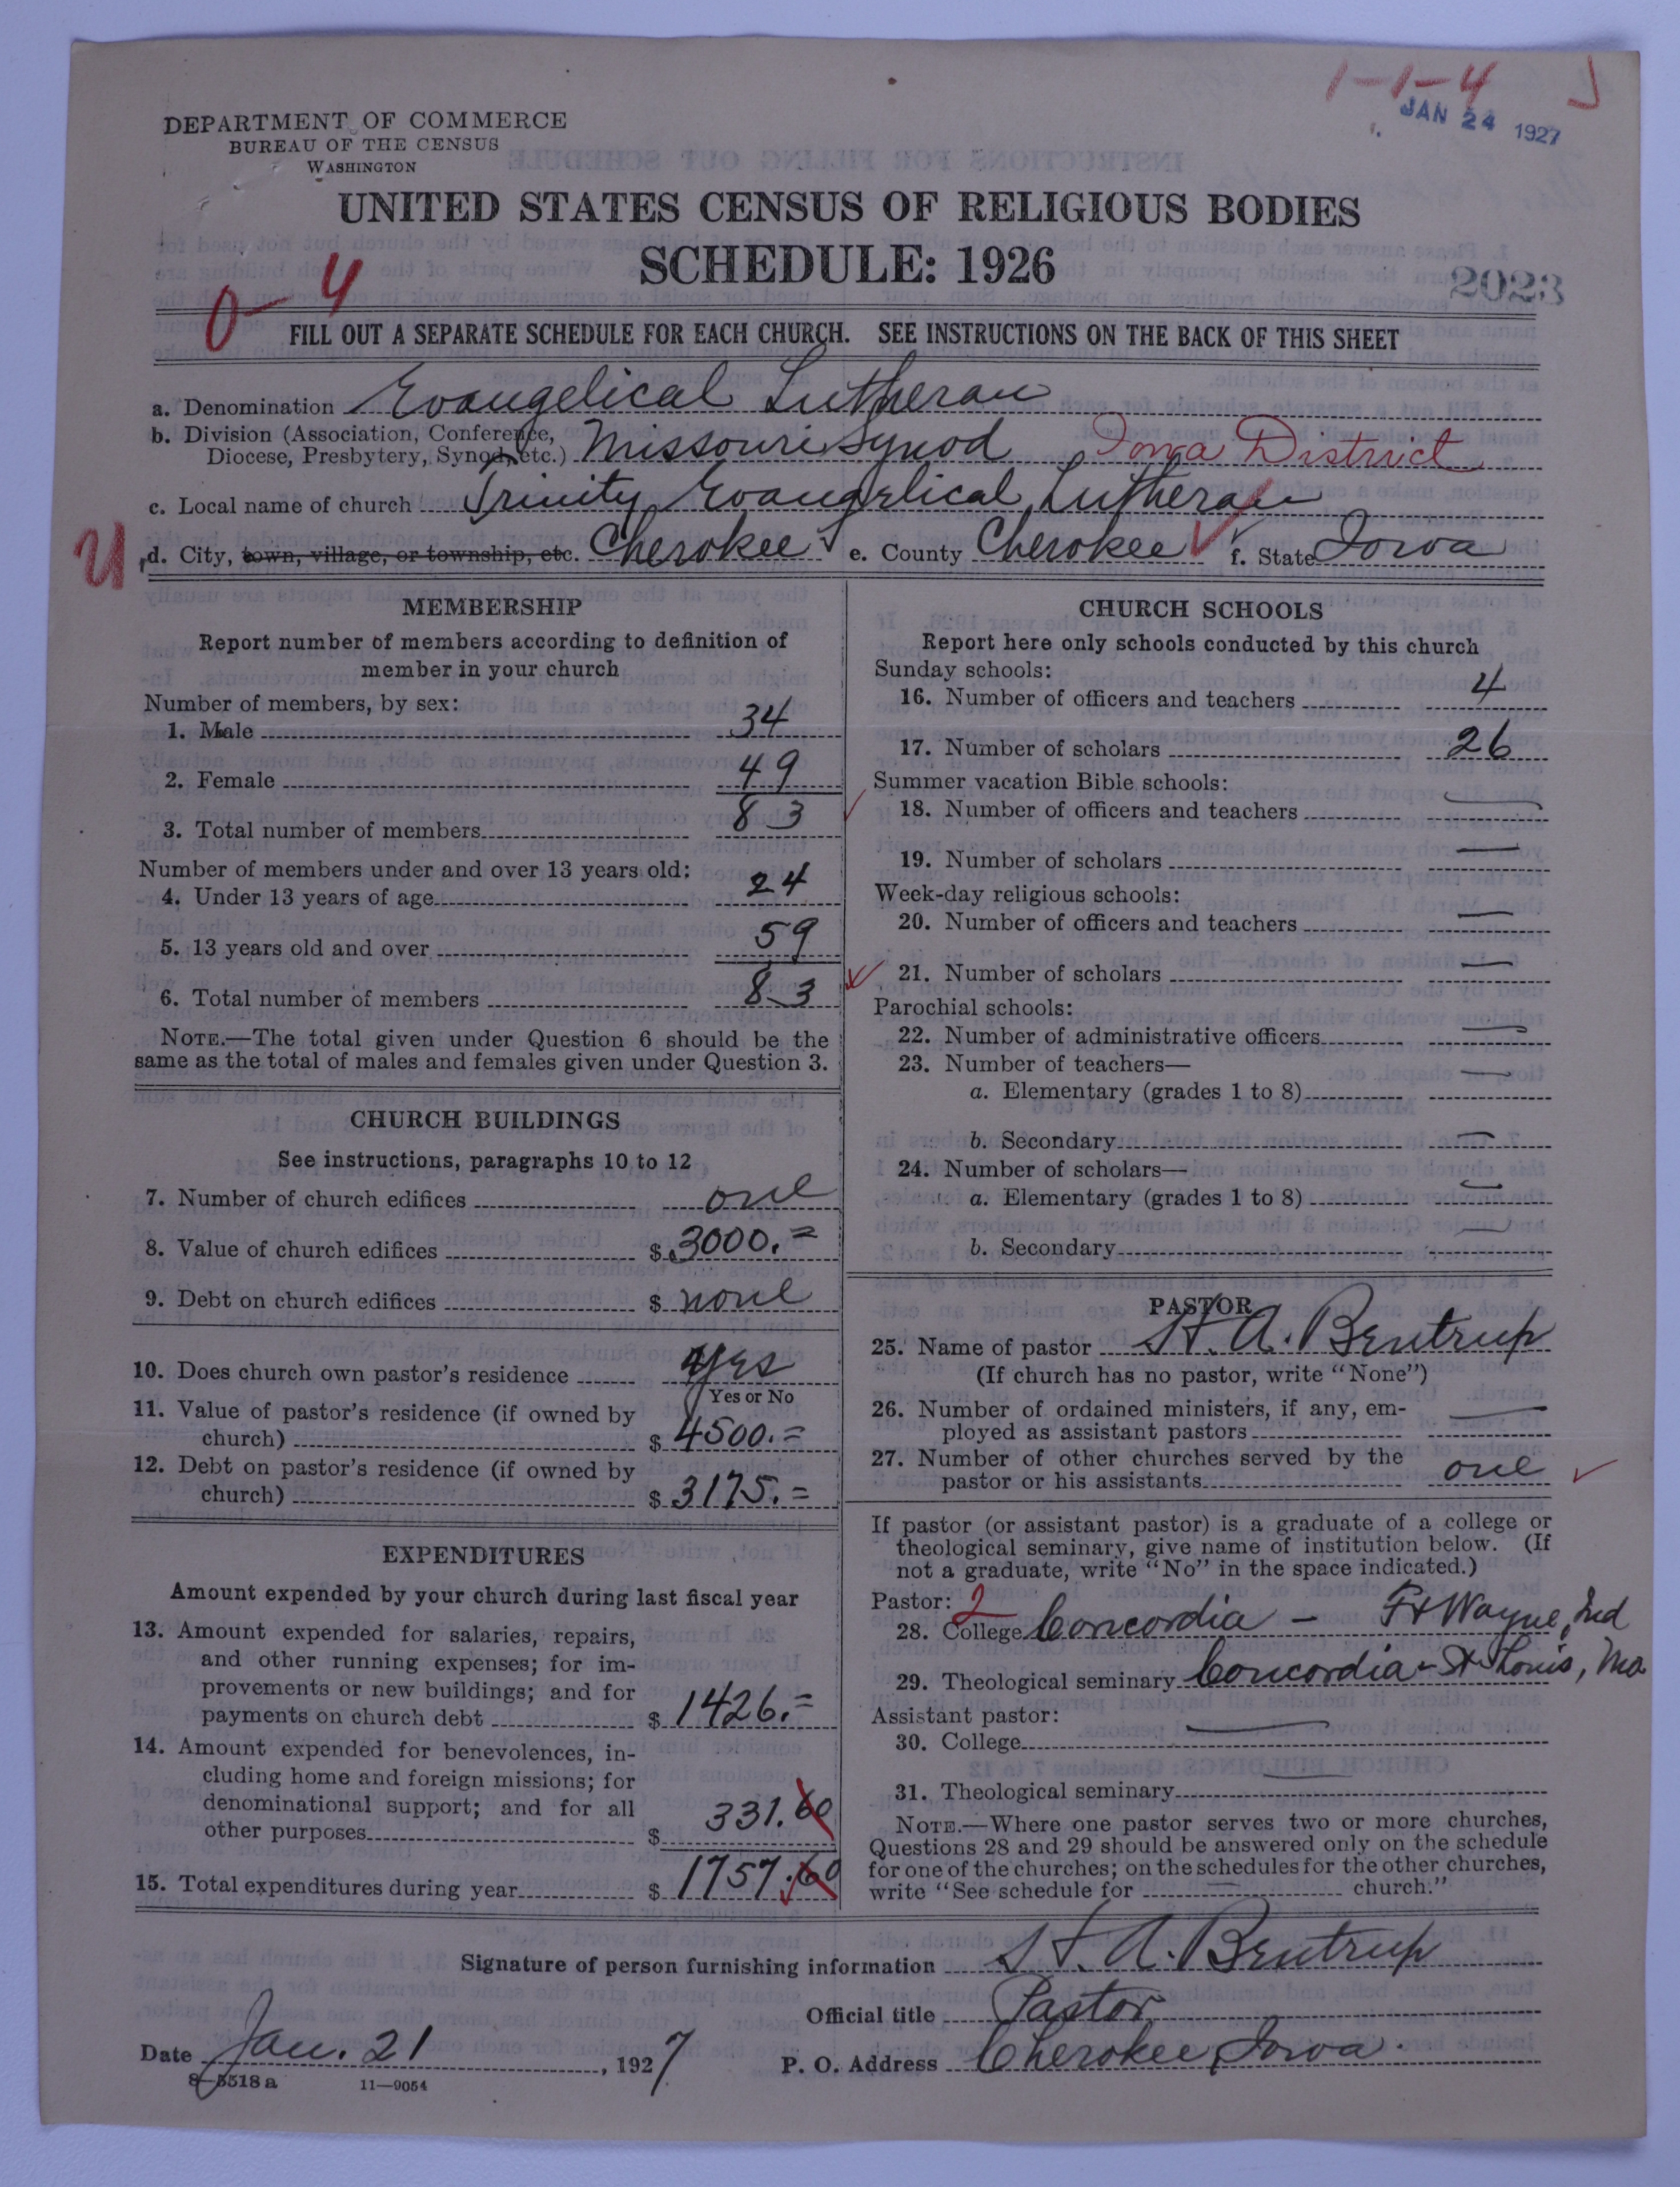 1-1-4
JAN 24 1927
DEPARTMENT OF COMMERCE
BUREAU OF THE CENSUS
WASHINGTON
UNITED STATES CENSUS OF RELIGIOUS BODIES
SCHEDULE: 1926
2023
0-4
FILL OUT A SEPARATE SCHEDULE FOR EACH CHURCH. SEE INSTRUCTIONS ON THE BACK OF THIS SHEET
a. Denomination Evangelical Lutheran
b. Division (Association, Conference,
Diocese, Presbytery, Synod, etc.) Missouri Synod Iowa District
c. Local name of church Trinity Evangelical Lutheran
d. City, town, village, or township, etc. Cherokee e. County Cherokee f. State Iowa
MEMBERSHIP
Report number of members according to definition of
member in your church
Number of members, by sex:
1. Male 34
2. Female 49
3. Total number of members 83
Number of members under and over 13 years old:
4. Under 13 years of age 24
5. 13 years old and over 59
6. Total number of members 83
NOTE.—The total given under Question 6 should be the
same as the total of males and females given under Question 3.
CHURCH BUILDINGS
See instructions, paragraphs 10 to 12
7. Number of church edifices one
8. Value of church edifices $ 3000.=
9. Debt on church edifices $ none
10. Does church own pastor's residence Yes
Yes or No
11. Value of pastor's residence (if owned by
church) $ 4500.=
12. Debt on pastor's residence (if owned by
church) $ 3175.=
EXPENDITURES
Amount expended by your church during last fiscal year
13. Amount expended for salaries, repairs,
and other running expenses; for im-
provements or new buildings; and for
payments on church debt $ 1426.=
14. Amount expended for benevolences, in-
cluding home and foreign missions; for
denominational support; and for all
other purposes $ 331.60
15. Total expenditures during year $ 1757.60
CHURCH SCHOOLS
Report here only schools conducted by this church
Sunday schools:
16. Number of officers and teachers 4
17. Number of scholars 26
Summer vacation Bible schools:
18. Number of officers and teachers —
19. Number of scholars —
Week-day religious schools:
20. Number of officers and teachers —
21. Number of scholars —
Parochial schools:
22. Number of administrative officers —
23. Number of teachers—
a. Elementary (grades 1 to 8) —
b. Secondary —
24. Number of scholars—
a. Elementary (grades 1 to 8) —
b. Secondary —
PASTOR
25. Name of pastor H. A. Bentrup
(If church has no pastor, write "None")
26. Number of ordained ministers, if any, em-
ployed as assistant pastors —
27. Number of other churches served by the
pastor or his assistants one
If pastor (or assistant pastor) is a graduate of a college or
theological seminary, give name of institution below. (If
not a graduate, write "No" in the space indicated.)
Pastor: 2
28. College Concordia - Ft Wayne, Ind
29. Theological seminary Concordia - St Louis, Mo
Assistant pastor:
30. College —
31. Theological seminary —
NOTE.—Where one pastor serves two or more churches,
Questions 28 and 29 should be answered only on the schedule
for one of the churches; on the schedules for the other churches,
write "See schedule for — church."
Signature of person furnishing information H. A. Bentrup
Official title Pastor
Date Jan. 21, 1927 P. O. Address Cherokee, Iowa.
8—5518 a 11—9054